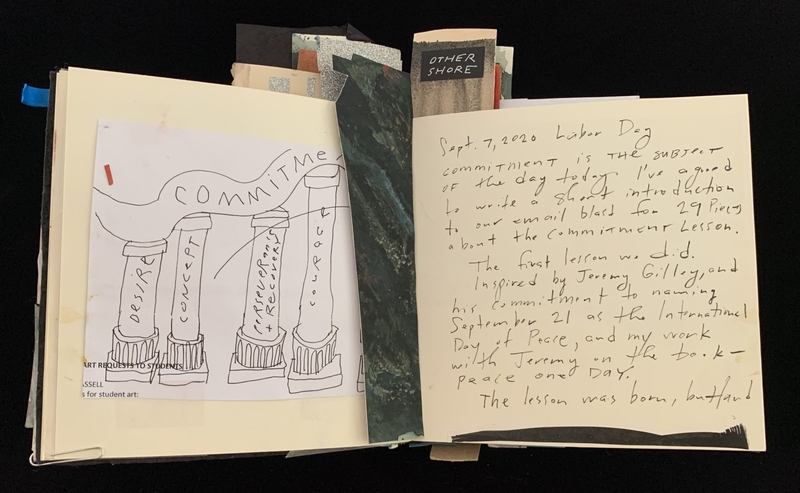 COMMITME
DESIRE
CONCEPT
PERSEVERANCE
+ RECOVERY
COURAGE
ART REQUESTS TO STUDENTS
ASSELL
s for student art:
OTHER
SHORE
Sept. 7, 2020 Labor Day
COMMITMENT IS THE SUBJECT
OF the day today. I've agreed
to write a short introduction
to our email blast for 29 Pieces
about the COMMITMENT LESSON.
The first lesson we did.
Inspired by Jeremy Gilley, and
his commitment to naming
September 21 as the International
Day of Peace, and my work
with Jeremy on the book –
PEACE ONE DAY.
The lesson was born, but/and